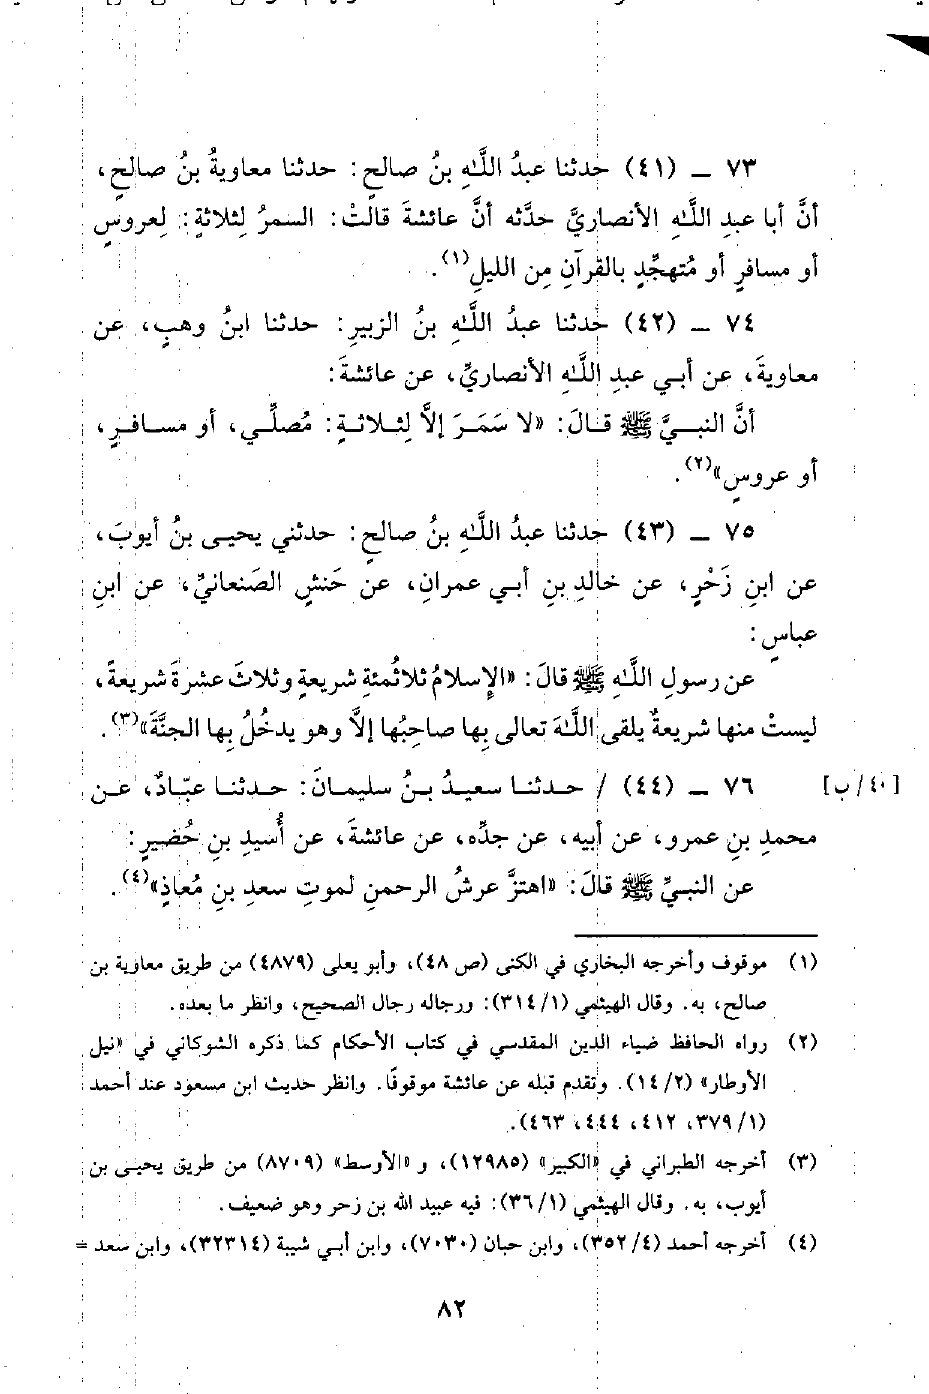 ٧٣ ــ (٤١) حدثنا عبدُ اللَّهِ بنُ صالحٍ: حدثنا معاويةُ بنُ صالحٍ،
أنَّ أبا عبدِ اللَّهِ الأنصاريَّ حدَّثه أنَّ عائشةَ قالتْ: السمرُ لِثلاثةٍ: لِعروسٍ
أو مسافرٍ أو مُتهجِّدٍ بالقرآنِ مِن الليلِ(١).
٧٤ ــ (٤٢) حدثنا عبدُ اللَّهِ بنُ الزبيرِ: حدثنا ابنُ وهبٍ، عن
معاويةَ، عن أبي عبدِ اللَّهِ الأنصاريِّ، عن عائشةَ:
أنَّ النبيَّ ﷺ قالَ: «لا سَمَرَ إلاَّ لِثلاثةٍ: مُصلِّي، أو مسافرٍ،
أو عروسٍ»(٢).
٧٥ ــ (٤٣) حدثنا عبدُ اللَّهِ بنُ صالحٍ: حدثني يحيى بنُ أيوبَ،
عن ابنِ زَحْرٍ، عن خالدِ بنِ أبي عمرانِ، عن حَنشٍ الصَنعانيِّ، عن ابنِ
عباسٍ:
عن رسولِ اللَّهِ ﷺ قالَ: «الإسلامُ ثلاثُمئةِ شريعةٍ وثلاثَ عشرةَ شريعةً،
ليستْ منها شريعةٌ يلقى اللَّهَ تعالى بِها صاحِبُها إلاَّ وهو يدخُلُ بِها الجنَّةَ»(٣).
٧٦ ــ (٤٤) / حدثنا سعيدُ بنُ سليمانَ: حدثنا عبّادٌ، عن [٤٠/ب]
محمدِ بنِ عمرو، عن أبيه، عن جدِّه، عن عائشةَ، عن أُسيدِ بنِ حُضيرٍ:
عن النبيِّ ﷺ قالَ: «اهتزَّ عرشُ الرحمنِ لموتِ سعدِ بنِ مُعاذٍ»(٤).
(١) موقوف وأخرجه البخاري في الكنى (ص ٤٨)، وأبو يعلى (٤٨٧٩) من طريق معاوية بن
صالح، به. وقال الهيثمي (١/ ٣١٤): ورجاله رجال الصحيح، وانظر ما بعده.
(٢) رواه الحافظ ضياء الدين المقدسي في كتاب الأحكام كما ذكره الشوكاني في «نيل
الأوطار» (٢/ ١٤). وتقدم قبله عن عائشة موقوفًا. وانظر حديث ابن مسعود عند أحمد
(١/ ٣٧٩، ٤١٢، ٤٤٤، ٤٦٣).
(٣) أخرجه الطبراني في «الكبير» (١٢٩٨٥)، و «الأوسط» (٨٧٠٩) من طريق يحيى بن
أيوب، به. وقال الهيثمي (١/ ٣٦): فيه عبيد الله بن زحر وهو ضعيف.
(٤) أخرجه أحمد (٤/ ٣٥٢)، وابن حبان (٧٠٣٠)، وابن أبي شيبة (٣٢٣١٤)، وابن سعد =
٨٢